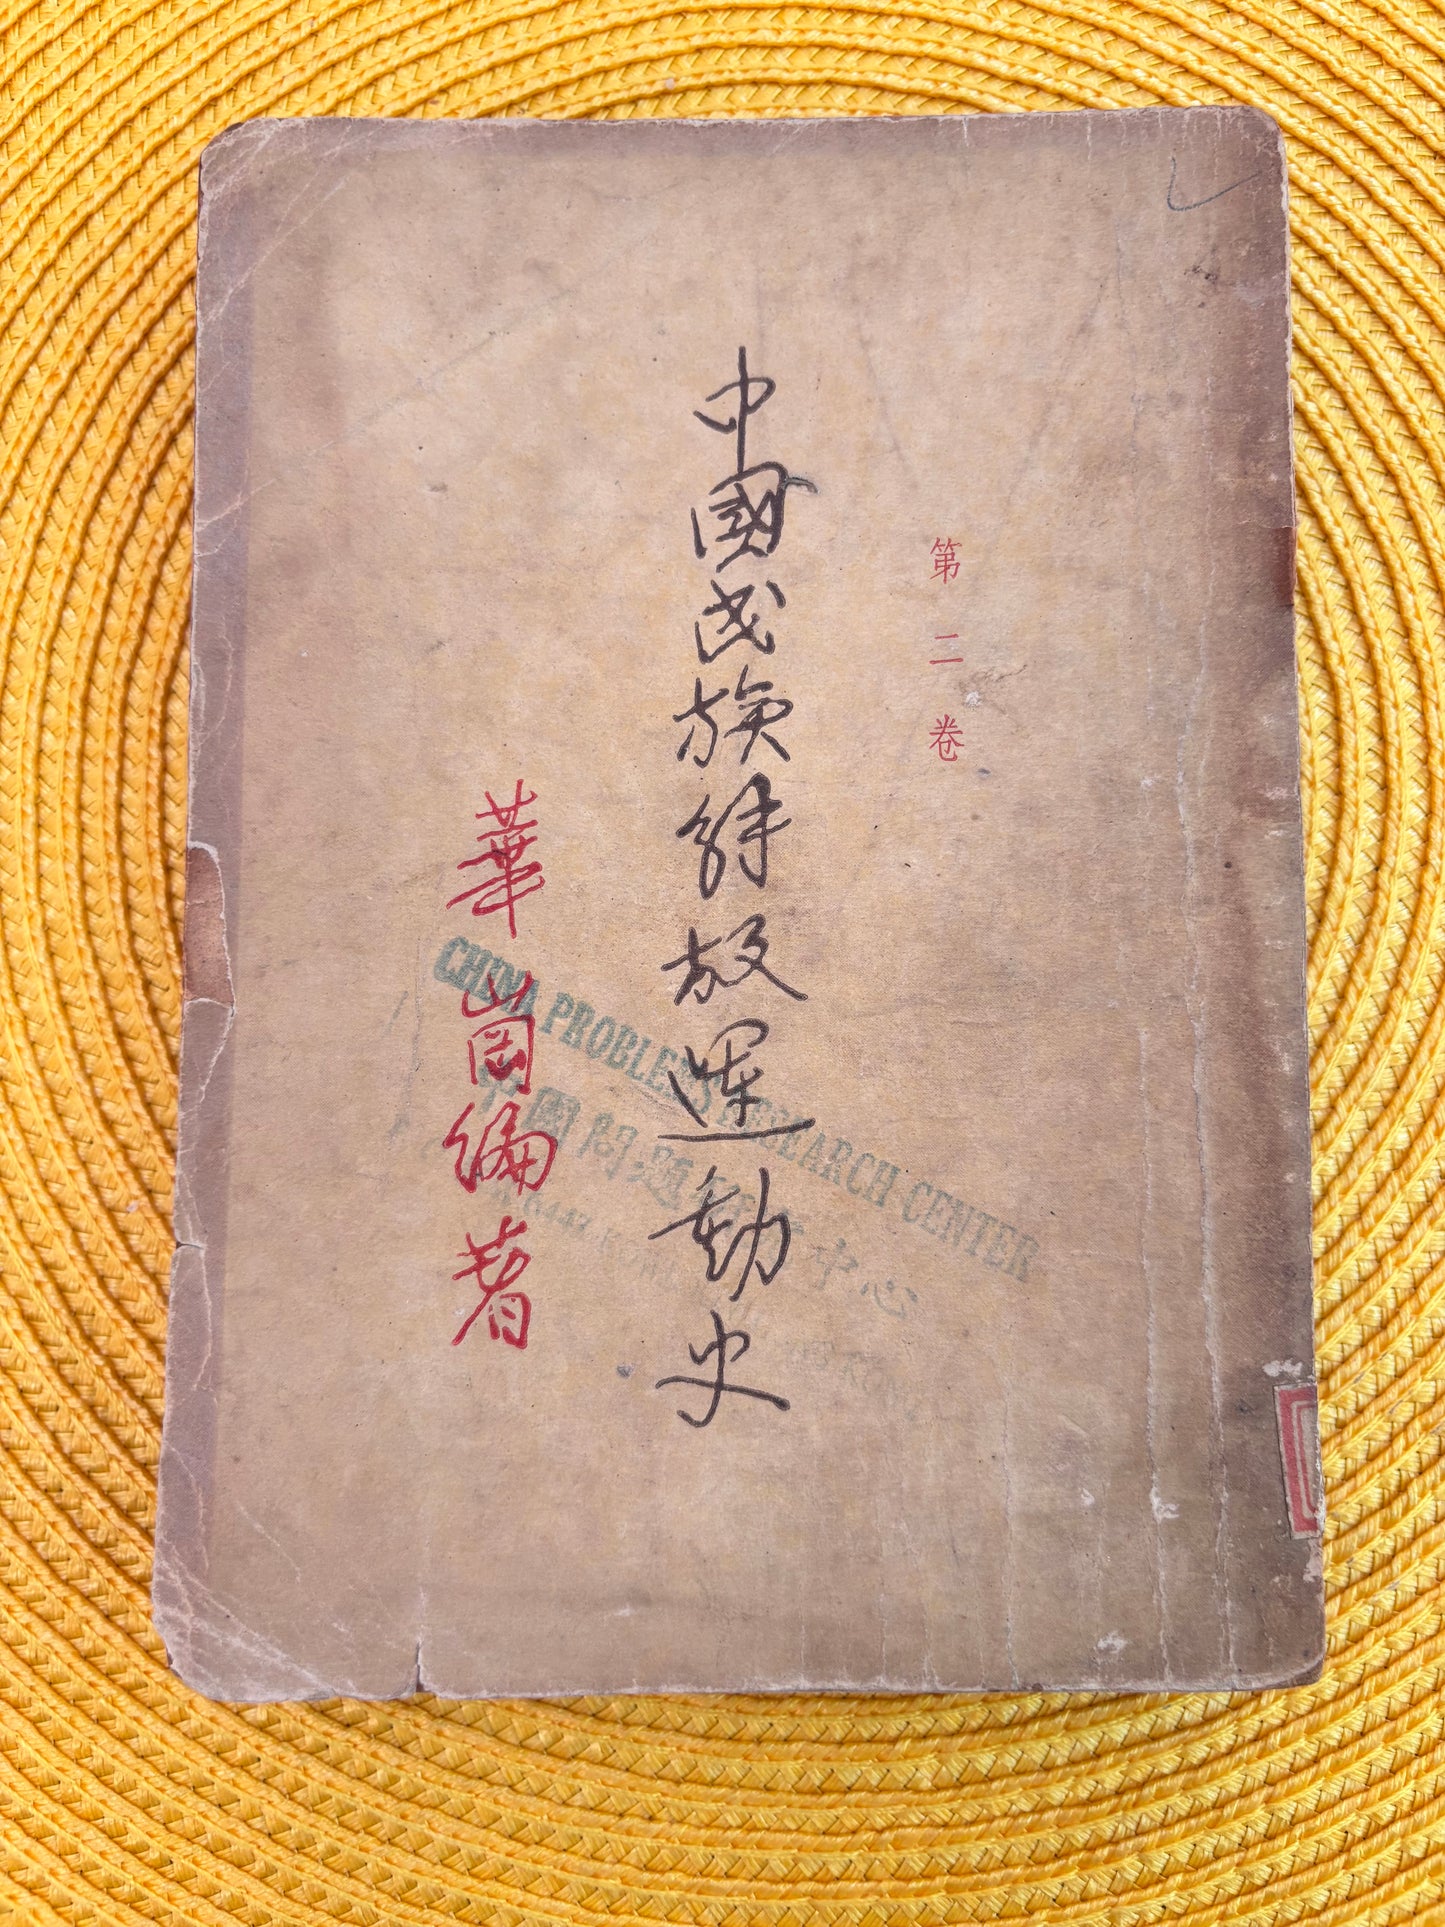 第二卷
中國民族解放運動史
華崗編著
CHINA PROBLEMS RESEARCH CENTER
中國問題研究中心